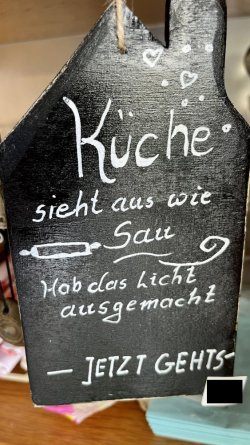 Küche
sieht aus wie
Sau
Hab das Licht
ausgemacht
- JETZT GEHTS -